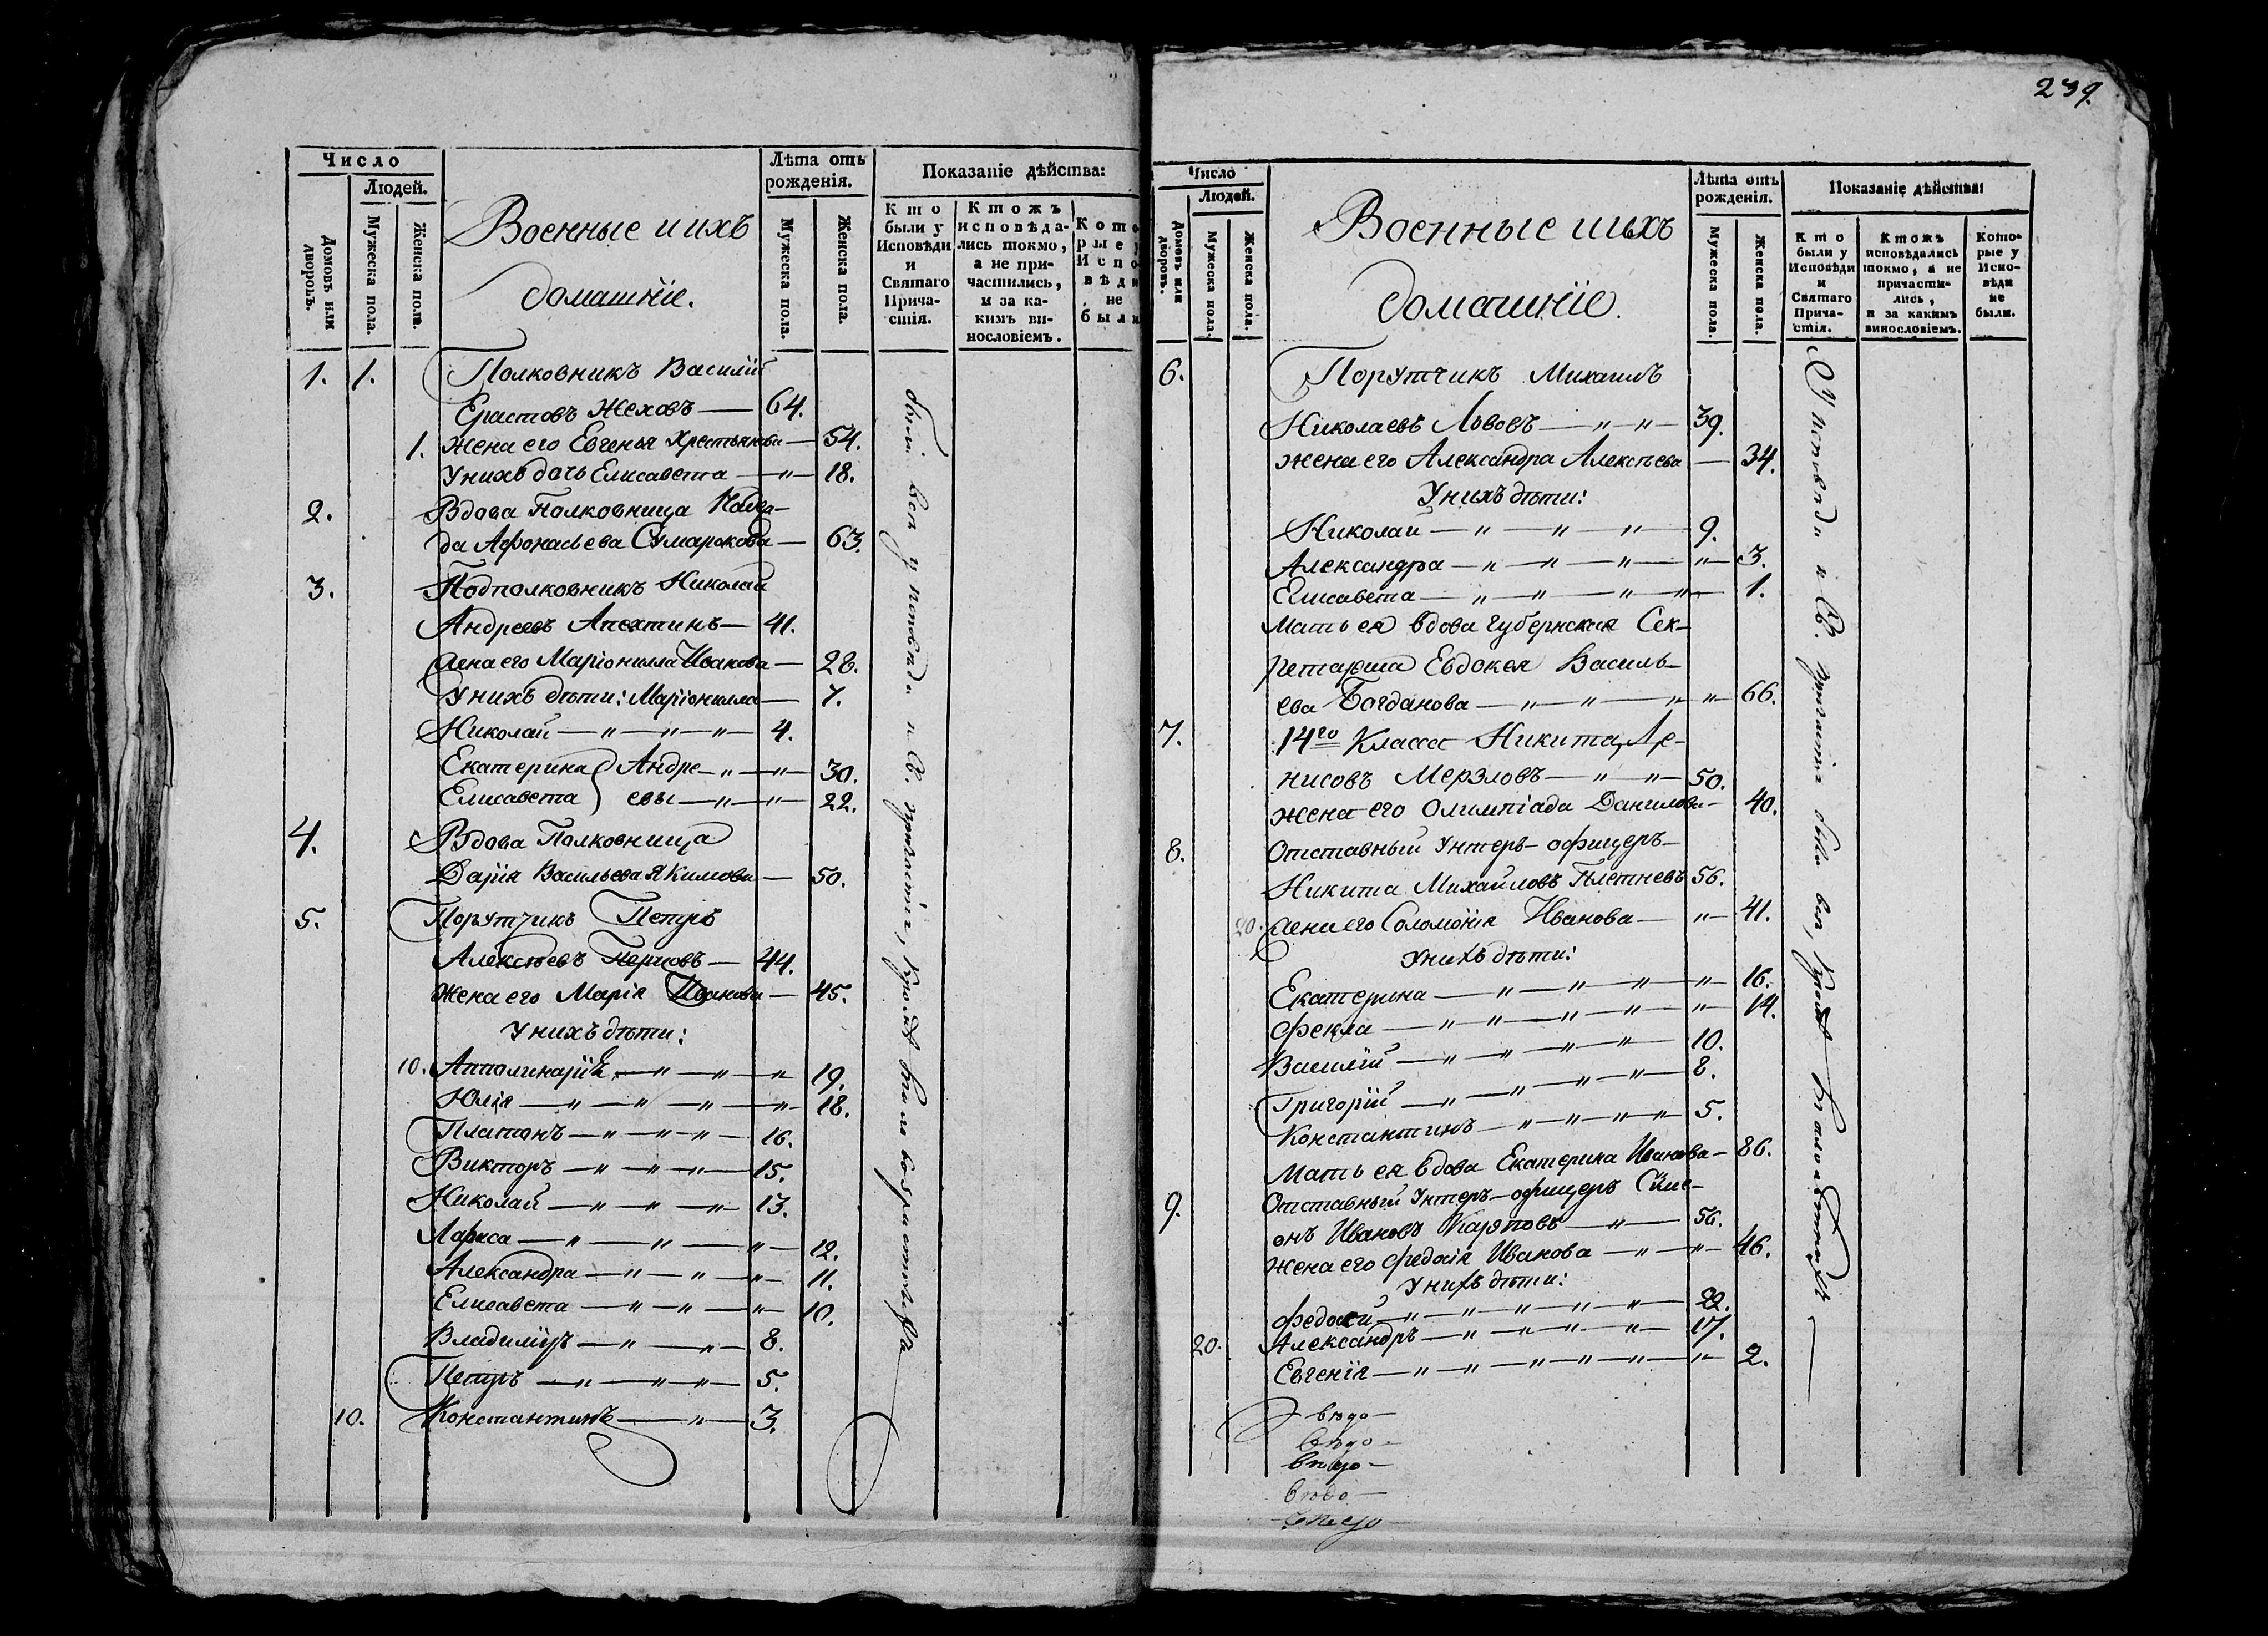 239.
Число
Людей.
Домовъ или дворовъ.
Мужеска пола.
Женска пола.
Военные и ихъ
домашніе.
Лѣта отъ
рожденія.
Мужеска пола.
Женска пола.
Показаніе дѣйства:
Кто
были у
Исповѣди
и
Святаго
Прича-
стія.
Ктожъ
исповѣда-
лись токмо,
а не при-
частились,
и за ка-
кимъ ви-
нословіемъ.
Кото
рые у
Испо
вѣди
не
были
1. 1. Полковникъ Василій
Ерастовъ Жеховъ — 64.
1. Жена его Евгенья Хрестьянова — 54.
У нихъ дочь Елисавета — „ — 18.
2. Вдова Полковница Наде-
да Афонасьева Сумарокова — 63.
3. Подполковникъ Николай
Андреевъ Апехтинъ — 41.
Жена его Маріонилла Иванова — 28.
У нихъ дѣти: Маріонилла — 7.
Николай — „ — „ — „ — 4.
Екатерина } Андре — „ — „ — 30.
Елисавета } евы — „ — „ — 22.
4. Вдова Полковница
Дарія Васильева Якимова — 50.
5. Порутчикъ Петръ
Алексѣевъ — 44.
Жена его Марія Иванова — 45.
У нихъ дѣти:
10. Апполинарія — „ — „ — „ 19.
Юлія — „ — „ — „ — „ — 18.
Платонъ — „ — „ — „ — 16.
Викторъ — „ — „ — „ — 15.
Николай — „ — „ — „ — 13.
Лариса — „ — „ — „ — 12.
Александра — „ — „ — „ — 11.
Елисавета — „ — „ — „ — 10.
Владиміръ — „ — „ — 8.
Петръ — „ — „ — „ — 5.
10. Константинъ — „ — 3.
были вси у исповѣди и Св. причастія, кромѣ
Число
Людей.
Домовъ или дворовъ.
Мужеска пола.
Женска пола.
Военные и ихъ
домашніе.
Лѣта отъ
рожденія.
Мужеска пола.
Женска пола.
Показаніе дѣйства:
Кто
были у
Исповѣди
и
Святаго
Прича-
стія.
Ктожъ
исповѣдались
токмо, а не
причасти-
лись,
и за какимъ
винословіемъ.
Кото-
рые у
Испо-
вѣди
не
были.
6. Порутчикъ Михаилъ
Николаевъ Львовъ — „ — „ — 39.
Жена его Александра Алексѣева — 34.
У нихъ дѣти:
Николай — „ — „ — „ — 9.
Александра — „ — „ — „ — „ — 3.
Елисавета — „ — „ — „ — „ — 1.
Мать ея вдова Губернская Сек-
ретарша Евдокея Василь-
ева Богданова — „ — „ — „ — „ — 66.
7. 14го Класса Никита Де-
нисовъ Мерзловъ — „ — „ — 50.
Жена его Олимпіада Данилова — 40.
8. Отставный Унтеръ-офицеръ
Никита Михайловъ Плетневъ 56.
20. Жена его Соломонія Иванова — „ — 41.
У нихъ дѣти:
Екатерина — „ — „ — „ — „ — 16.
Фекла — „ — „ — „ — „ — „ — 14.
Василій — „ — „ — „ — „ — 10.
Григорій — „ — „ — „ — „ — 8.
Константинъ — „ — „ — „ — „ — 5.
Мать ея вдова Екатерина Иванова — 86.
9. Отставный Унтеръ-офицеръ Симе-
онъ Ивановъ Карповъ — „ — 56.
Жена его Федосія Иванова — „ — „ — 46.
У нихъ дѣти:
Федосій — „ — „ — „ — „ — „ — 22.
20. Александръ — „ — „ — „ — „ — 17.
Евгенія — „ — „ — „ — „ — „ — „ — 2.
У исповѣди и Св. причастія были вси, кромѣ малолѣтныхъ